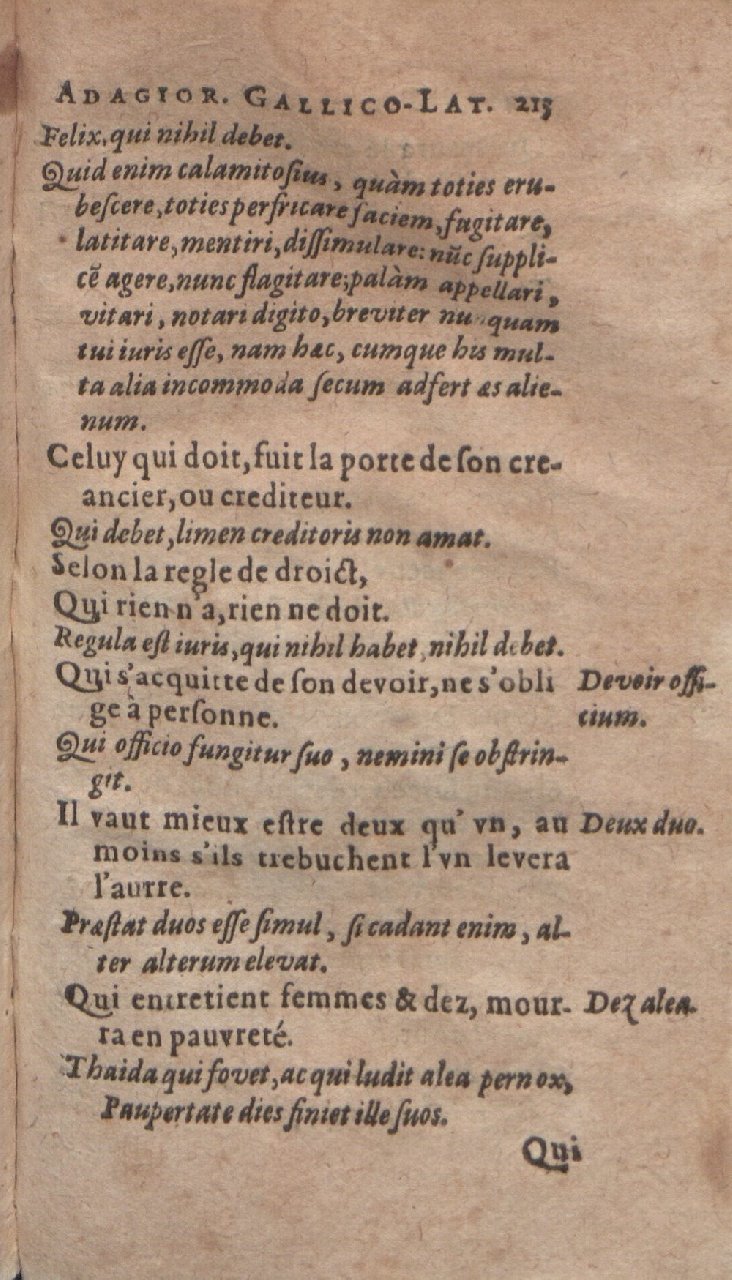 ADAGIOR. GALLICO-LAT. 215
Felix, qui nihil debet.
Quid enim calamitoſius, quàm toties eru-
beſcere, toties perfricare faciem, fugitare,
latitare, mentiri, diſſimulare: nūc ſuppli-
cē agere, nunc flagitare; palàm appellari,
vitari, notari digito, breviter nunquam
tui iuris eſſe, nam hæc, cumque his mul-
ta alia incommoda ſecum adfert æs alie-
num.
Celuy qui doit, fuit la porte de ſon cre-
ancier, ou crediteur.
Qui debet, limen creditoris non amat.
Selon la regle de droict,
Qui rien n'a, rien ne doit.
Regula eſt iuris, qui nihil habet, nihil debet.
Qui s'acquitte de ſon devoir, ne s'obli Devoir offi-
ge à perſonne. cium.
Qui officio fungitur ſuo, nemini ſe obſtrin-
git.
Il vaut mieux eſtre deux qu' vn, au Deux duo.
moins s'ils trebuchent l'vn levera
l'autre.
Præſtat duos eſſe ſimul, ſi cadant enim, al-
ter alterum elevat.
Qui entretient femmes & dez, mour- Dez alea.
ra en pauvreté.
Thaida qui fovet, ac qui ludit alea pernox,
Paupertate dies finiet ille ſuos.
Qui